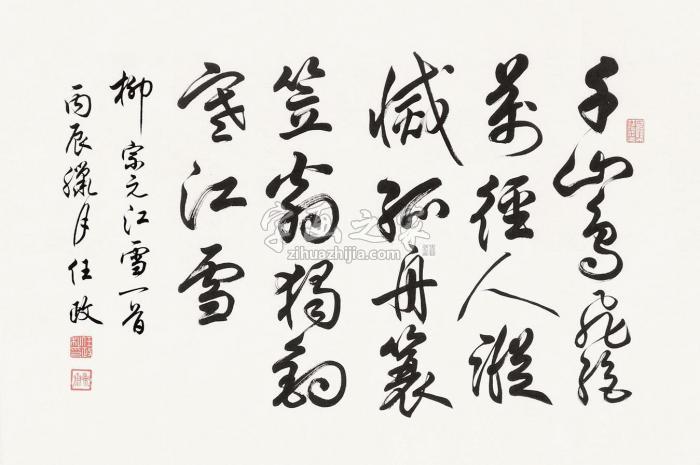 千山鳥飛絕
萬徑人蹤
滅孤舟蓑
笠翁獨釣
寒江雪
柳宗元江雪一首
丙辰臘月任政
字画之家
zihuazhijia.com